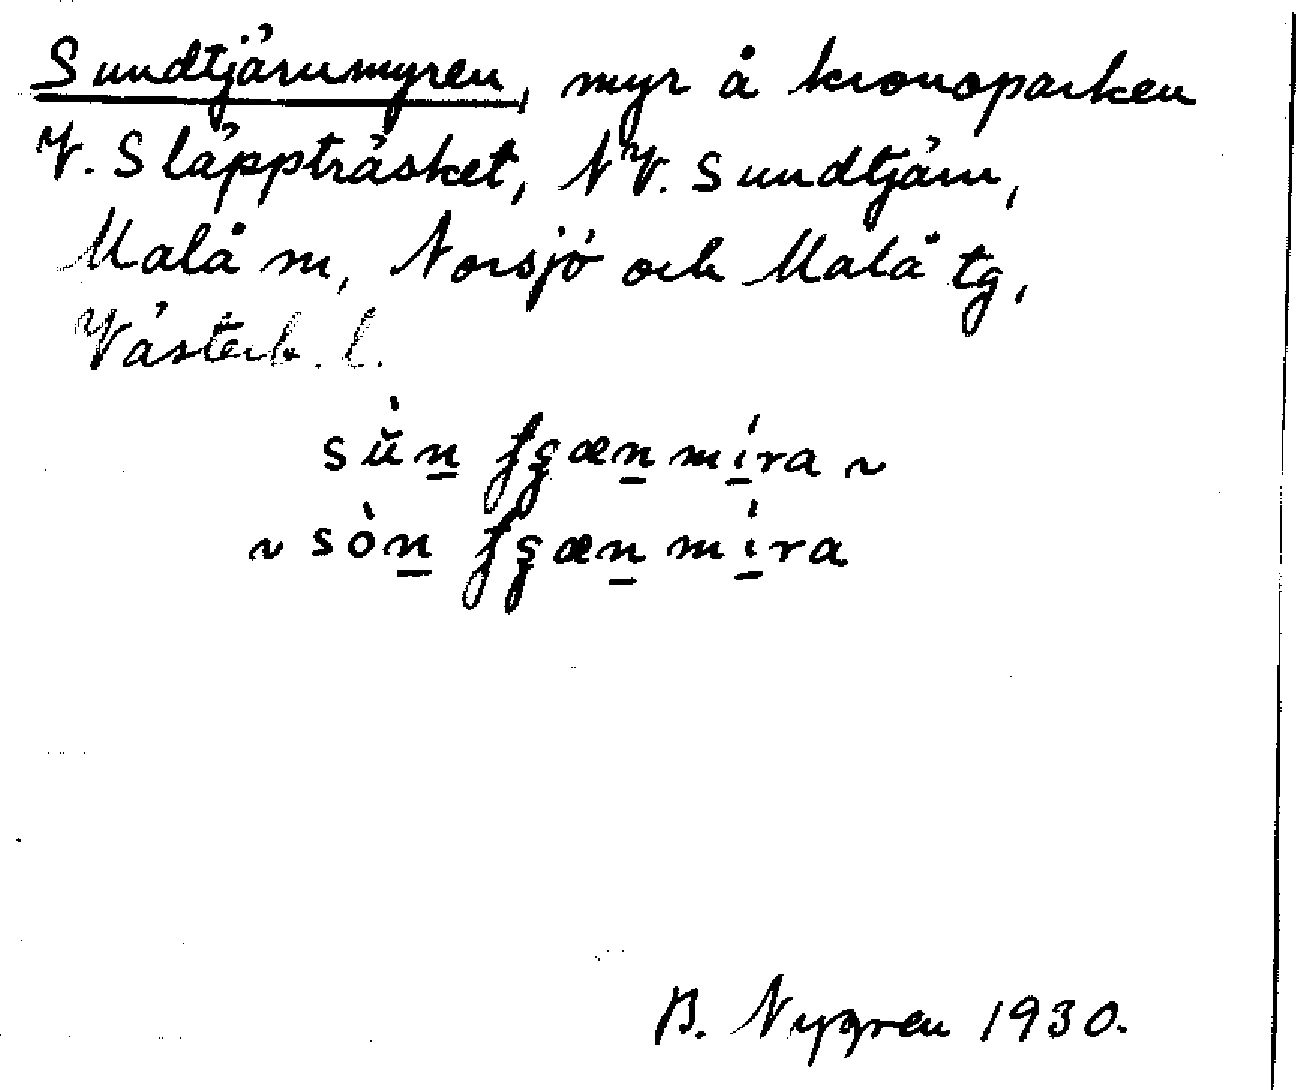 Sundtjärnmyren, myr å kronoparken
V. Släppträsket, NV. Sundtjärn,
Malå m, Norsjö och Malå tg,
Västerb. l.
sù̆n̲ ʃʂæn̲mí̲ra ~
~ sòn̲ ʃʂæn̲mí̲ra
B. Nygren 1930.